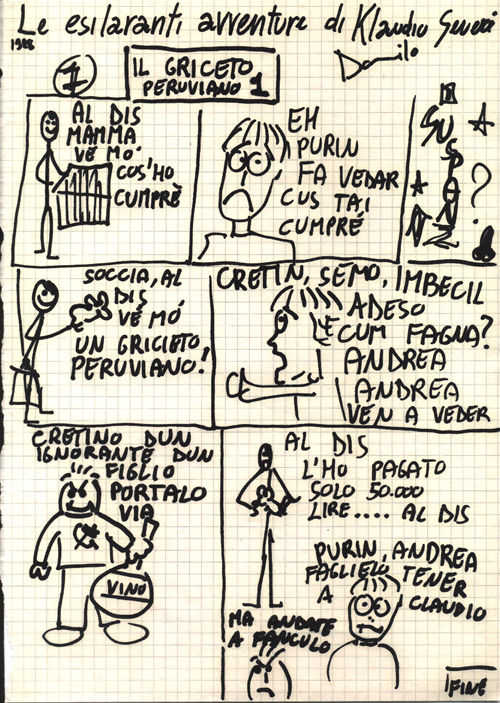 Le esilaranti avventure di Klaudio Severi
1988
Danilo
1
IL GRICETO
PERUVIANO 1
AL DIS
MAMMA
VE MÓ
COS'HO
CUMPRÈ
EH
PURIN
FA VEDAR
CUS TAI
CUMPRÉ
SUSPANZ
?
SOCCIA, AL
DIS
VE MÓ
UN GRICIETO
PERUVIANO!
CRETIN, SÉMO, IMBECIL
ADESO
CUM FAGNA?
ANDREA
ANDREA
VEN A VEDER
CRETINO DUN
IGNORANTE DUN
FIGLIO
PORTALO
VIA
VINO
AL DIS
L'HO PAGATO
SOLO 50.000
LIRE.... AL DIS
PURIN, ANDREA
FAGLIELO TENER
A CLAUDIO
MA ANDATE
A FANCULO
FINE